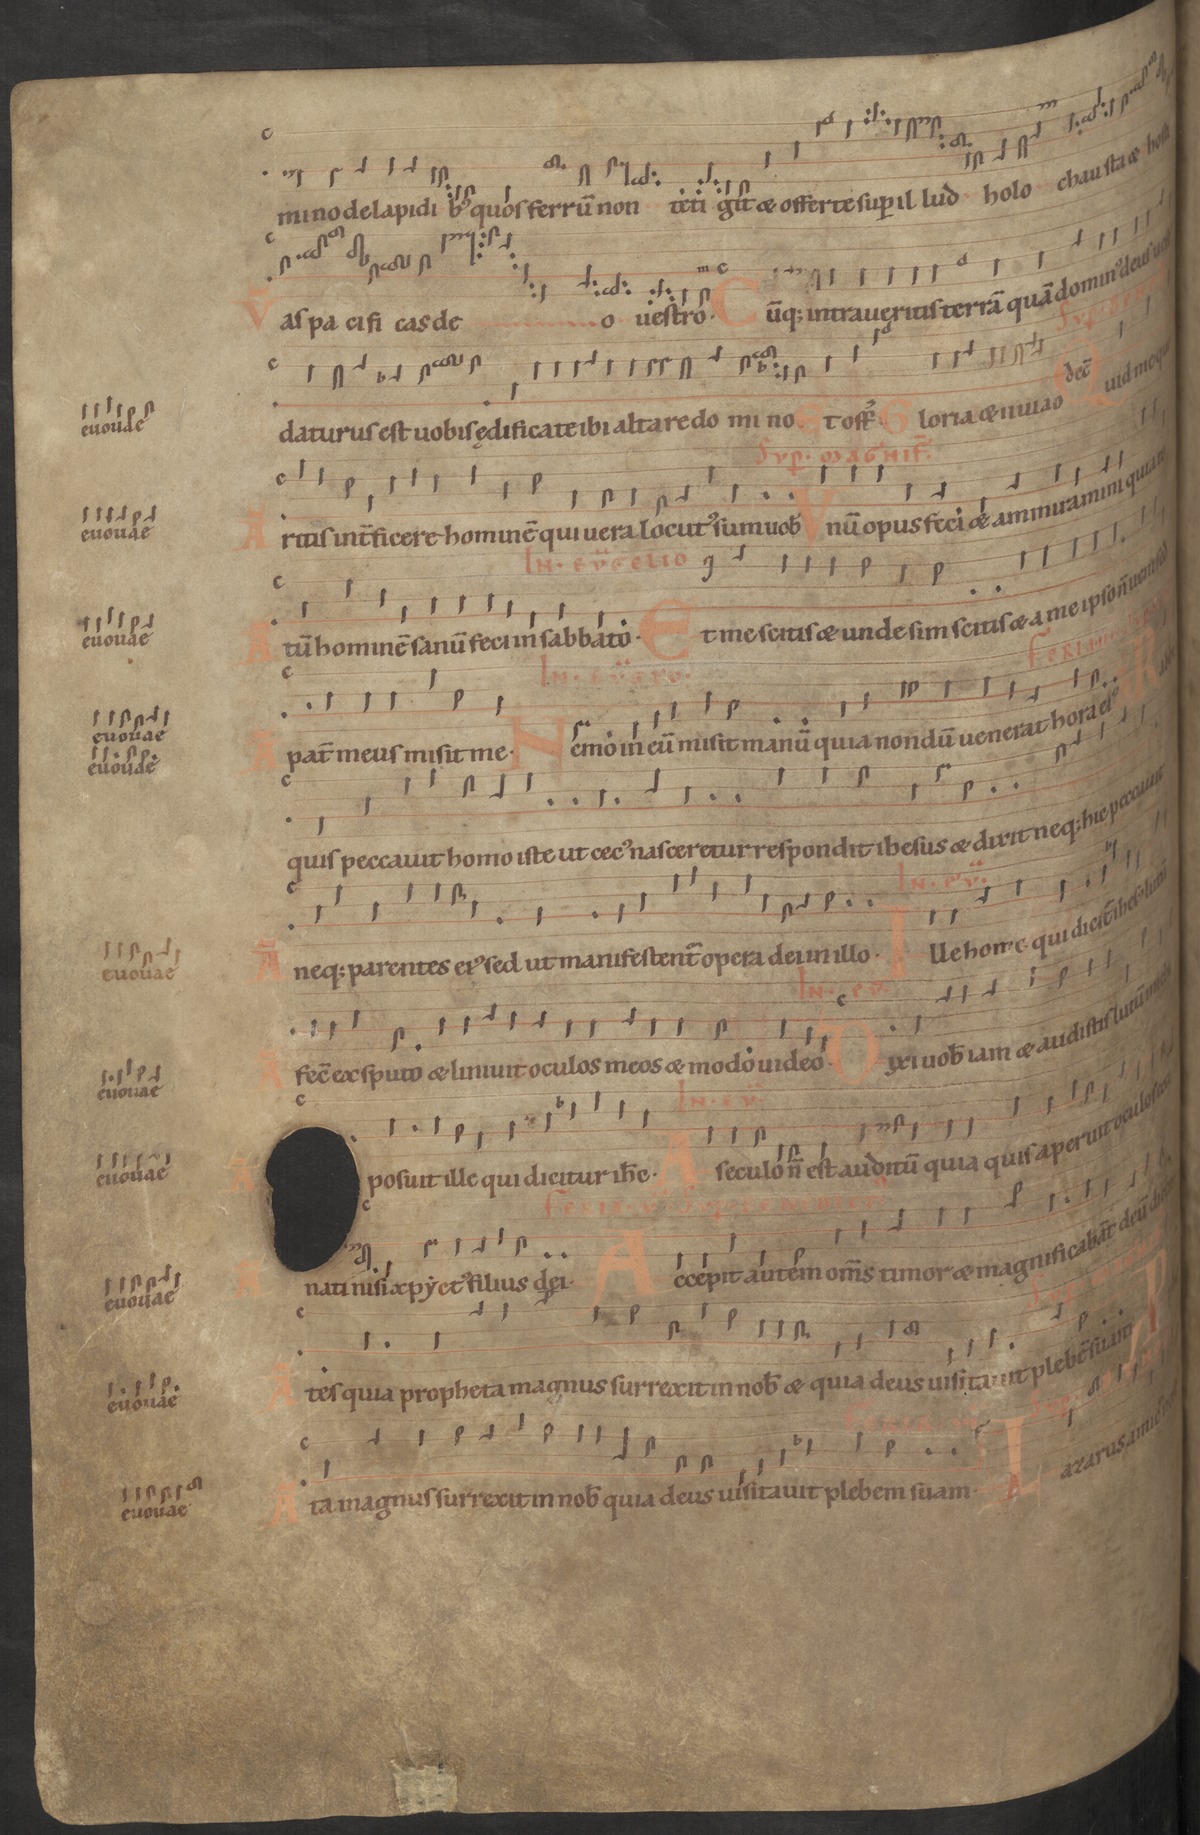 mino de lapidi bꝰ quos ferrū non teti git æ offerte sup il lud holo chausta æ hosti
V̄ as pa cifi cas de o uestro. Cūq; intraueritis terrā quā dominꝰ deus uest
euouae
daturus est uobis ędificate ibi altare do mi no. Et off. Gloria æ niuiao dec̄ Quid me que
Sup. magnif̄.
euouae
A ritis int̄ficere hominē qui uera locutꝰ sum uob̄ Vnū opus feci æ ammiramini quia to
In. eu̅gelio
euouae
A tū hominē sanū feci in sabbato. Et me scitis æ unde sim scitis æ a me ipso n̄ ueni sed
In. eu̅
Feria
euouae
euouae
A pat̄ meus misit me. Nemo in eū misit manū quia nondū uenerat hora eiꝰ Rabbi
quis peccauit homo iste ut cecꝰ nasceretur respondit ihesus æ dixit neq; hic peccauit
In. eu̅.
euouae
A neq; parentes eiꝰ sed ut manifestent̄ opera dei in illo. Ille homo qui dicit̄ ihesꝰ lutū
In. eu̅.
euouae
A fec̄ ex sputo æ liniuit oculos meos æ modo uideo. Dixi uob̄ iam æ audistis
In. eu̅
euouae
A posuit ille qui dicitur ih̄c. A seculo n̄ est auditū quia quis aperuit oculos ceci
euouae
A nati nisi xp̄y et filius dei. Accepit autem om̄s timor æ magnificabāt deū dicen
euouae
A tes quia propheta magnus surrexit in nob̄ æ quia deus uisitauit plebē suam
euouae
A ta magnus surrexit in nob̄ quia deus uisitauit plebem suam. Lazarus amicꝰ